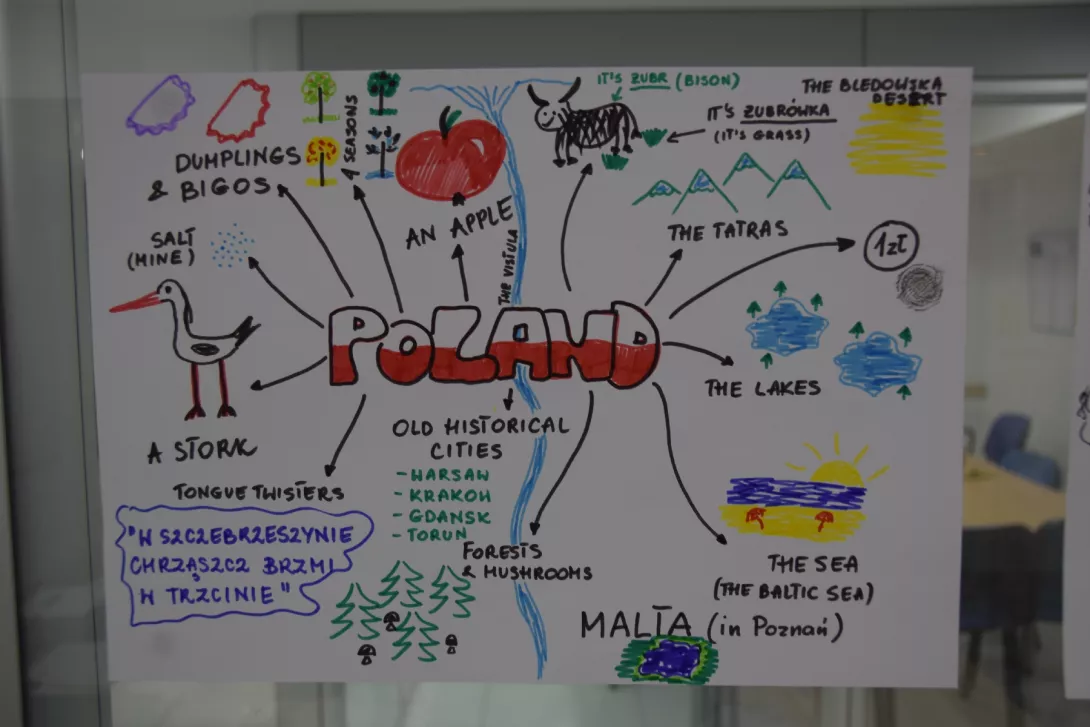 DUMPLINGS
& BIGOS
4 SEASONS
AN APPLE
THE VISTULA
IT'S ŻUBR (BISON)
IT'S ŻUBRÓWKA
(IT'S GRASS)
THE BLEDOWSKA
DESERT
SALT
(MINE)
THE TATRAS
1zł
POLAND
THE LAKES
A STORK
OLD HISTORICAL
CITIES
- WARSAW
- KRAKOW
- GDANSK
- TORUN
TONGUE TWISTERS
"W SZCZEBRZESZYNIE
CHRZĄSZCZ BRZMI
W TRZCINIE"
FORESTS
& MUSHROOMS
THE SEA
(THE BALTIC SEA)
MALTA (in Poznań)